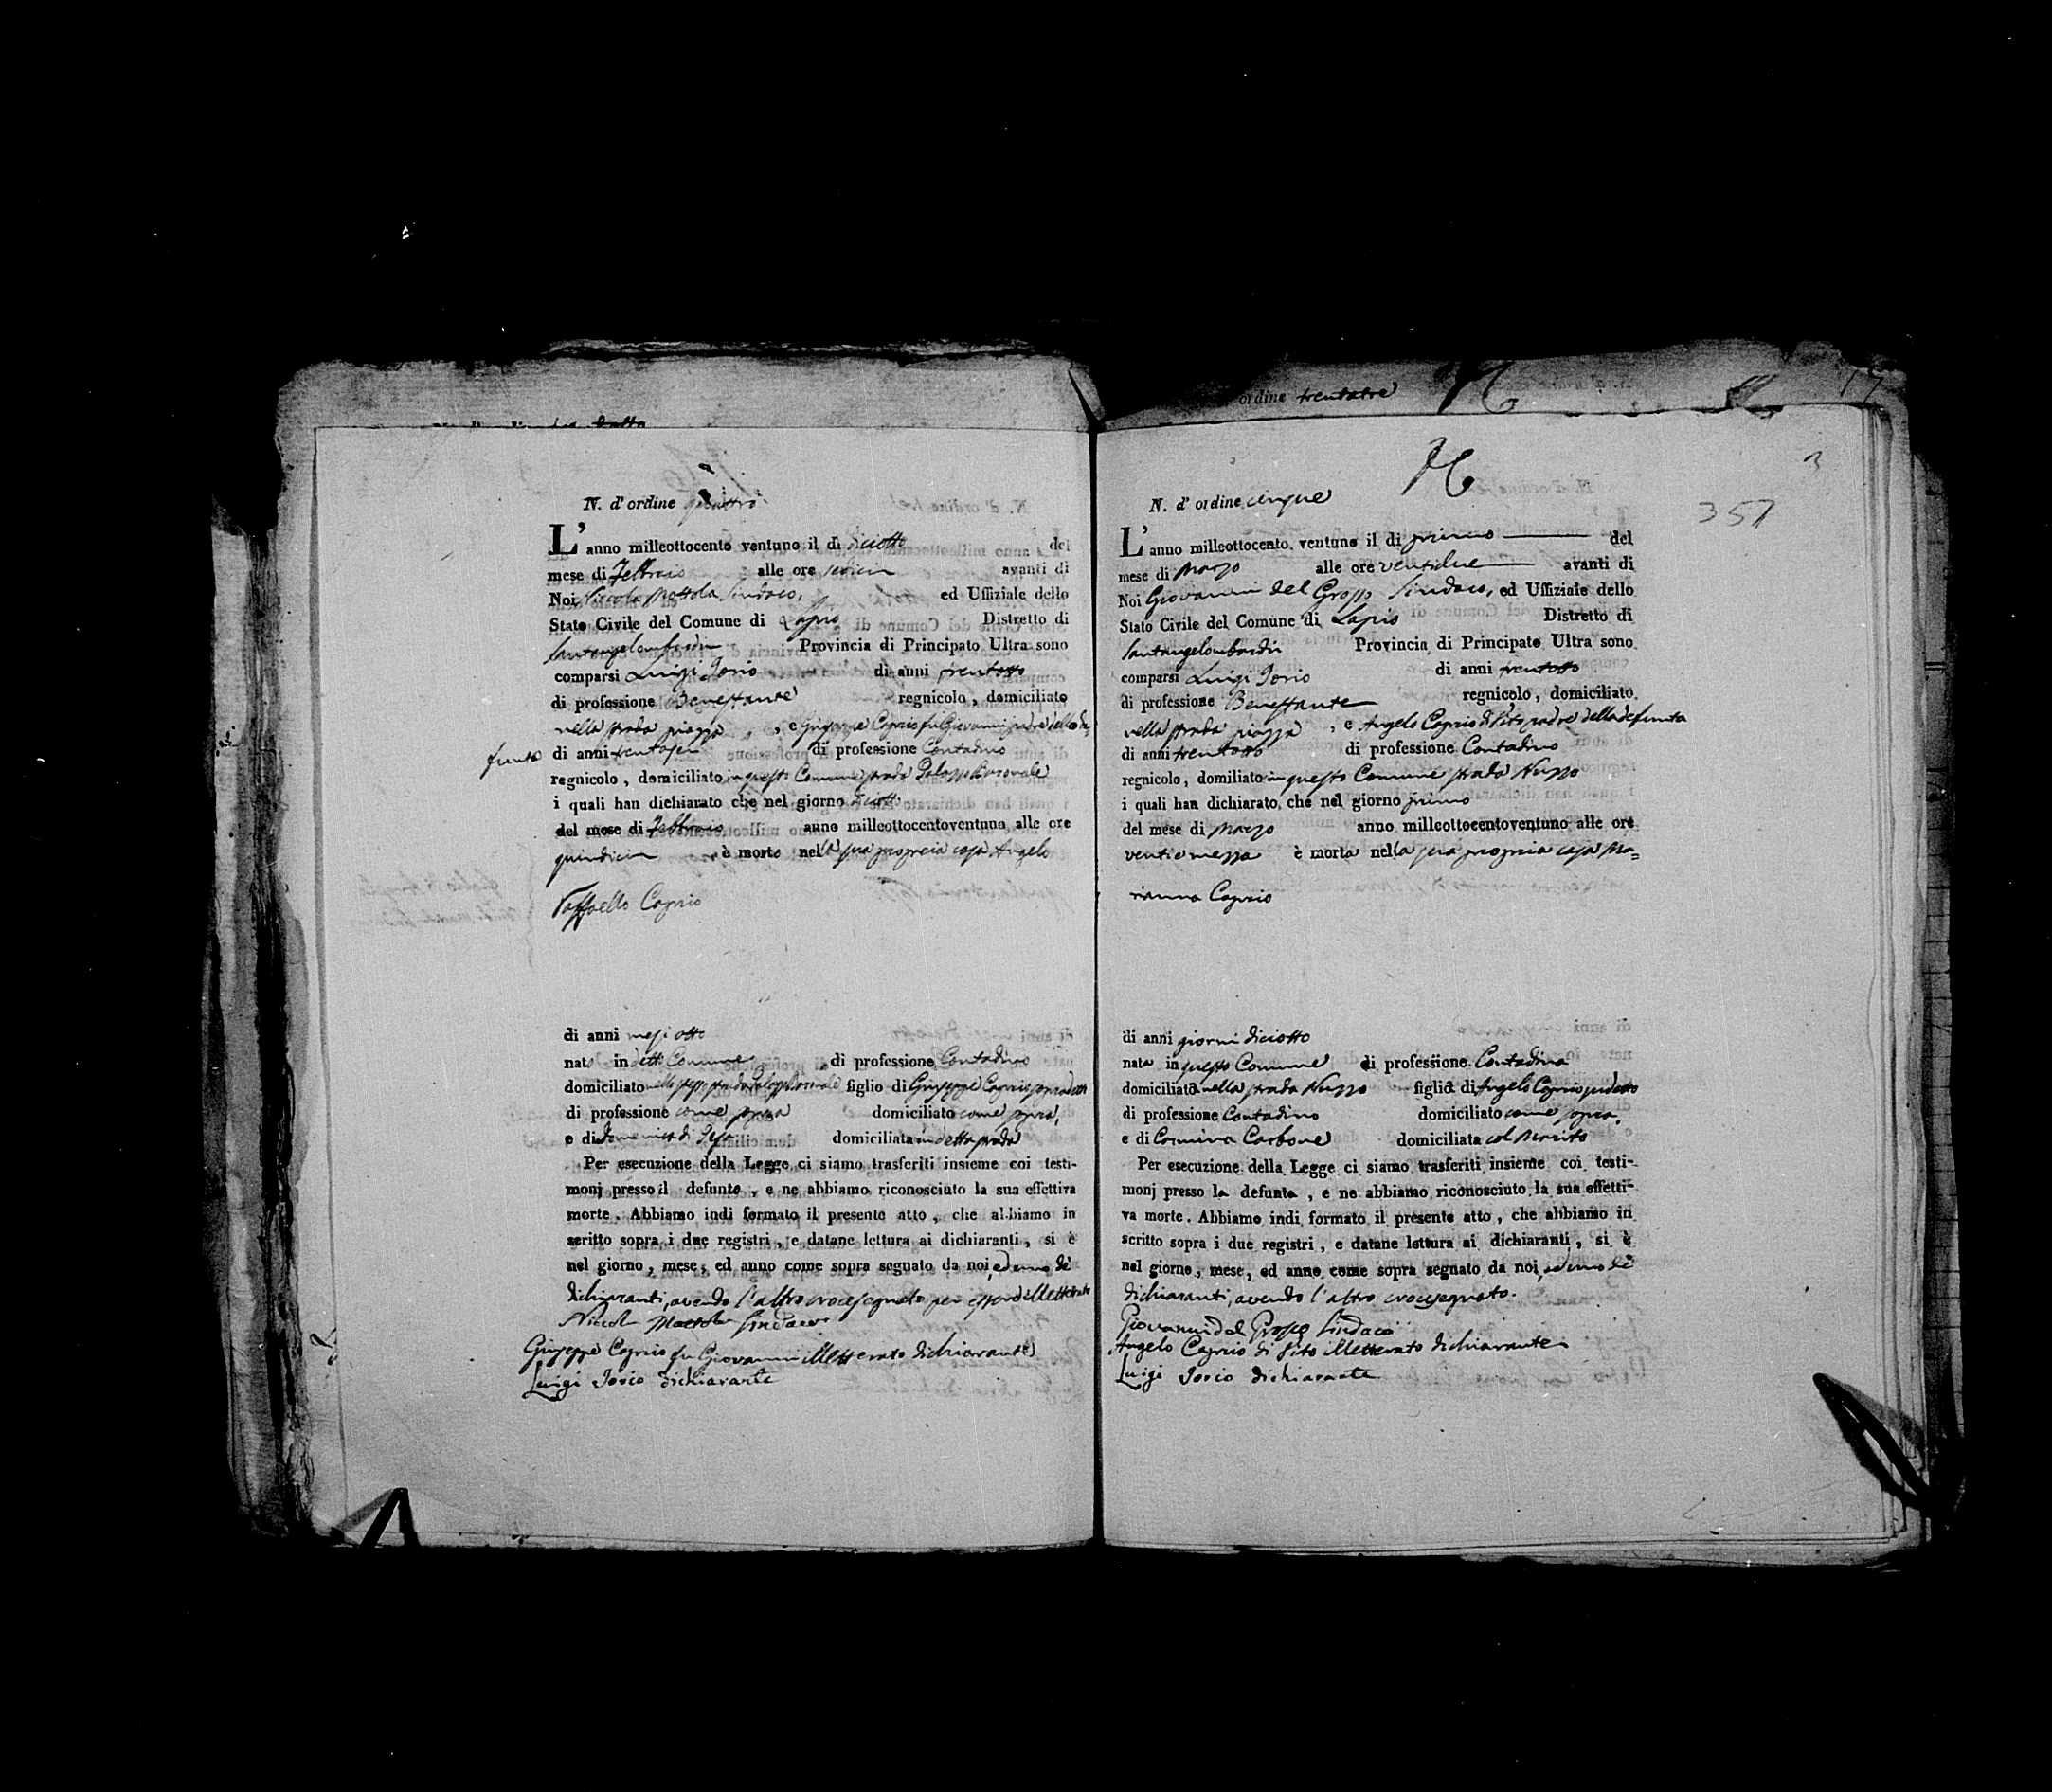 N. d' ordine quattro
L' anno milleottocento ventuno il dì diciotto del
mese di Febbraio alle ore sedici avanti di
Noi Niccola Mottola Sindaco, ed Uffiziale dello
Stato Civile del Comune di Lapio Distretto di
Santangelombardi Provincia di Principato Ultra sono
comparsi Luigi Iorio di anni trentotto
di professione Benestante regnicolo, domiciliato
nella strada piazza, e Giuseppe Caprio fu Giovanni padre dello de-
funto di anni trentasei di professione Contadino
regnicolo, domiciliato in questo Comune strada Palazzo Baronale
i quali han dichiarato che nel giorno diciotto
del mese di Febbraio anno milleottocentoventuno alle ore
quindici è morto nella sua propria casa Angelo
Raffaello Caprio
di anni mesi otto
nato in detto Comune di professione Contadino
domiciliato nella stessa strada Palazzo Baronale figlio di Giuseppe Caprio sopradetto
di professione come sopra domiciliato come sopra,
e di Domenica di domiciliata in detta strada
Per esecuzione della Legge ci siamo trasferiti insieme coi testi-
monj presso il defunto, e ne abbiamo riconosciuto la sua effettiva
morte. Abbiamo indi formato il presente atto, che abbiamo in
scritto sopra i due registri, e datane lettura ai dichiaranti, si è
nel giorno, mese, ed anno come sopra segnato da noi, ed uno de'
dichiaranti, avendo l'altro crocesegnato per essere illetterato
Niccola Mottola Sindaco
Giuseppe Caprio fu Giovanni illetterato dichiarante
Luigi Iorio dichiarante
ordine trentatre
17
3
357
N. d' ordine cinque
L' anno milleottocento ventuno il di primo del
mese di Marzo alle ore ventidue avanti di
Noi Giovanni del Grosso Sindaco, ed Uffiziale dello
Stato Civile del Comune di Lapio Distretto di
Santangelombardi Provincia di Principato Ultra sono
comparsi Luigi Iorio di anni trentotto
di professione Benestante regnicolo, domiciliato
nella strada piazza, e Angelo Caprio di Vito padre della defunta
di anni trentotto di professione Contadino
regnicolo, domiliato in questo Comune strada Nuzzo
i quali han dichiarato, che nel giorno primo
del mese di Marzo anno milleottocentoventuno alle ore
venti e mezza è morta nella sua propria casa Ma=
rianna Caprio
di anni giorni diciotto
nata in questo Comune di professione Contadina
domiciliata nella strada Nuzzo figlia di Angelo Caprio sudetto
di professione Contadino domiciliato come sopra,
e di Carmina Carbone domiciliata col Marito
Per esecuzione della Legge ci siamo trasferiti insieme coi testi-
monj presso la defunta, e ne abbiamo riconosciuto la sua effetti-
va morte. Abbiamo indi formato il presente atto, che abbiamo in
scritto sopra i due registri, e datane lettura ai dichiaranti, si è
nel giorno, mese, ed anno come sopra segnato da noi, ed uno de'
dichiaranti, avendo l'altro crocesegnato.
Giovanni del Grosso Sindaco
Angelo Caprio di Vito illetterato dichiarante
Luigi Iorio dichiarante